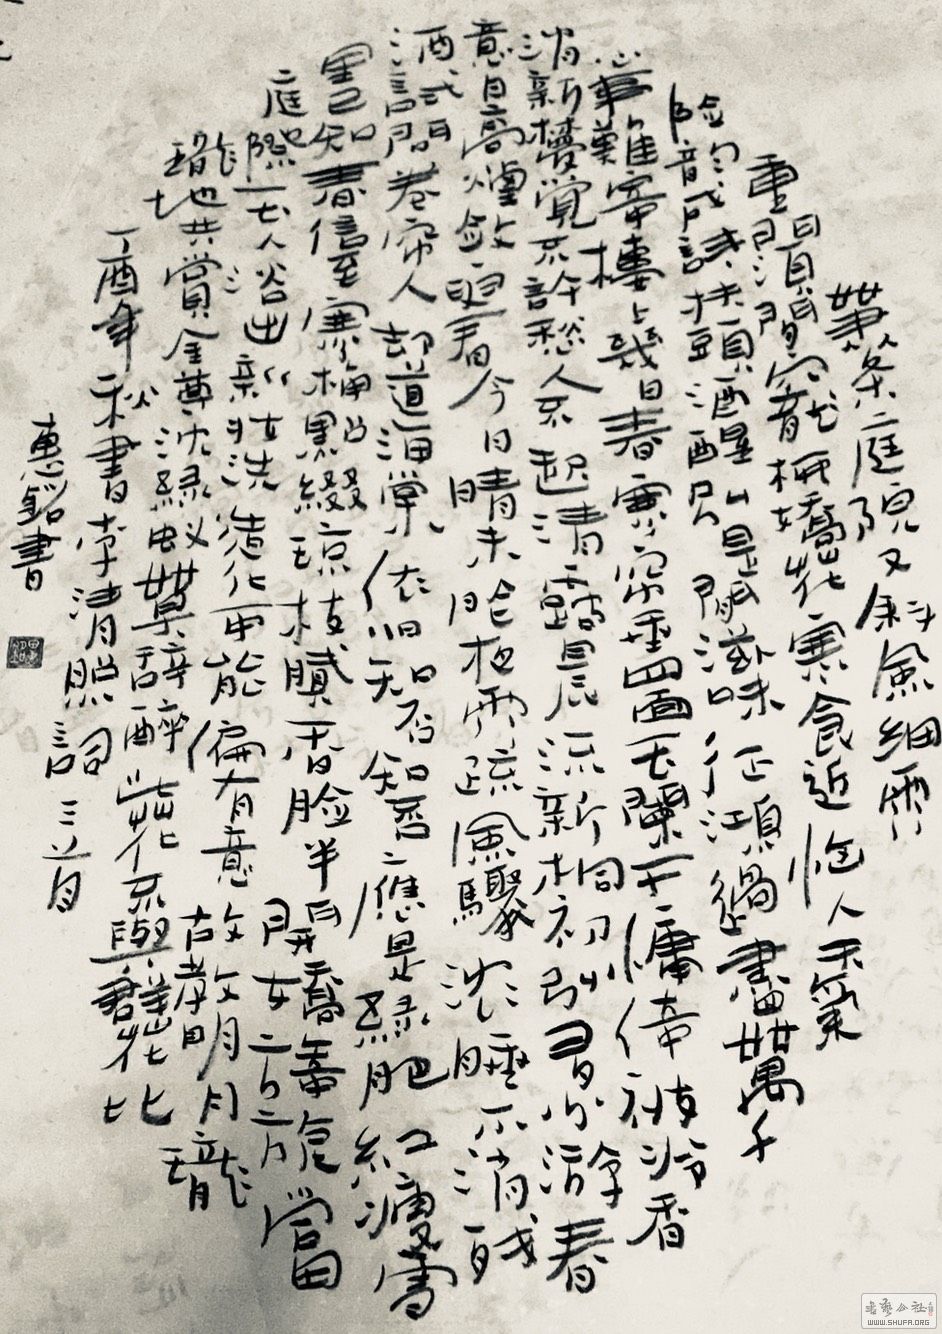 蕭條庭院又斜風細雨
重門須閉寵柳嬌花寒食近惱人天氣
險韻成詩扶頭酒醒別是閒滋味征鴻過盡萬千
心事難寄樓上幾日春寒簾垂四面玉闌干慵倚被冷香
消新夢覺不許愁人不起清露晨流新桐初引多少游春
意日高煙斂更看今日晴未昨夜雨疏風驟沈睡不消殘
酒試問卷簾人却道海棠依舊知否知否應是綠肥紅瘦雪
裏已知春信至寒梅點綴瓊枝膩香臉半開嬌旖旎當
庭際玉人浴出新妝洗造化可能偏有意故教明月瓏
瓏地共賞金尊沈綠蟻莫辭醉此花不與群花比
丁酉年秋書李清照詞三首
惠銘書
書藝公社
WWW.SHUFA.ORG